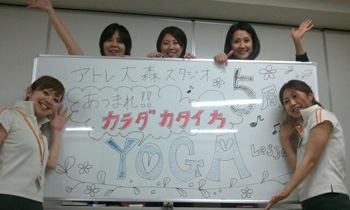 アトレ大森スタジオ
あつまれ!!
5周
カラダカタイ方
YOGA